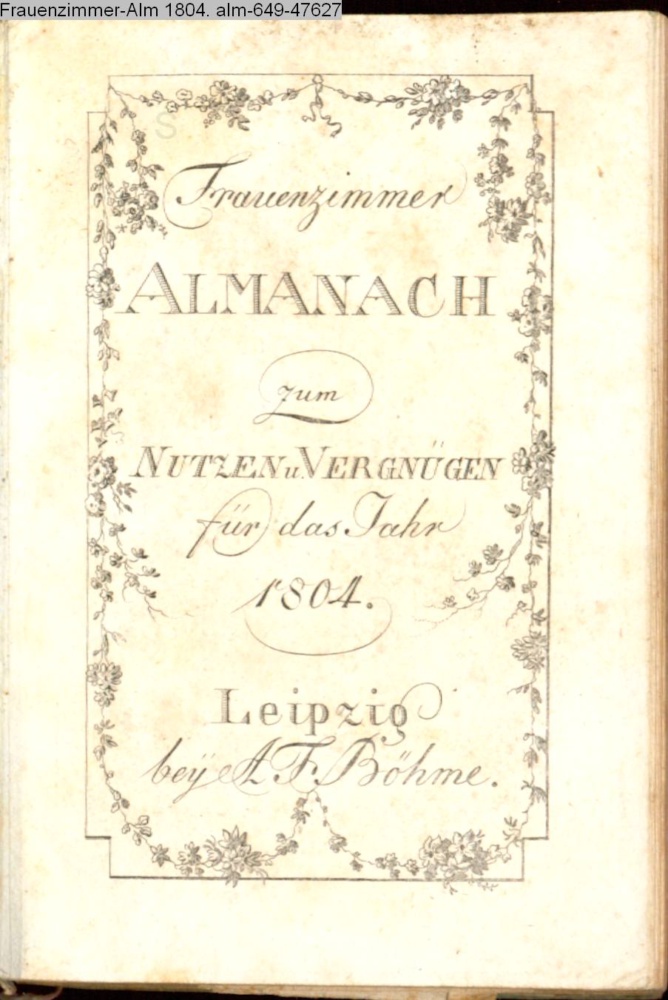 Frauenzimmer-Alm 1804. alm-649-47627
Frauenzimmer
ALMANACH
zum
NUTZEN u. VERGNÜGEN
für das Jahr
1804.
Leipzig
beÿ A. F. Böhme.